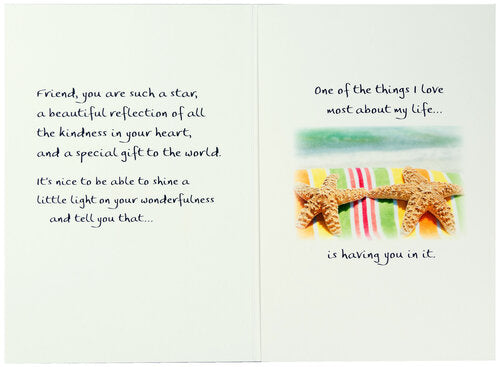 Friend, you are such a star,
a beautiful reflection of all
the kindness in your heart,
and a special gift to the world.
It's nice to be able to shine a
little light on your wonderfulness
and tell you that...
One of the things I love
most about my life...
is having you in it.